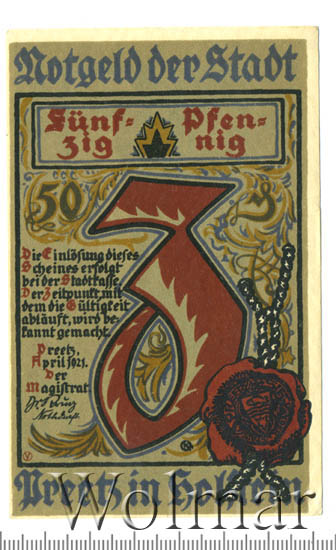 Notgeld der Stadt
Fünf- Pfen-
zig nig
50 ₰
3
Die Einlösung dieses
Scheines erfolgt
bei der Stadtkasse.
Der Zeitpunkt, mit
dem die Gültigkeit
abläuft, wird be-
kannt gemacht.
Preetz,
April 1921.
Der
Magistrat.
Preetz in Holstein
Wolmar